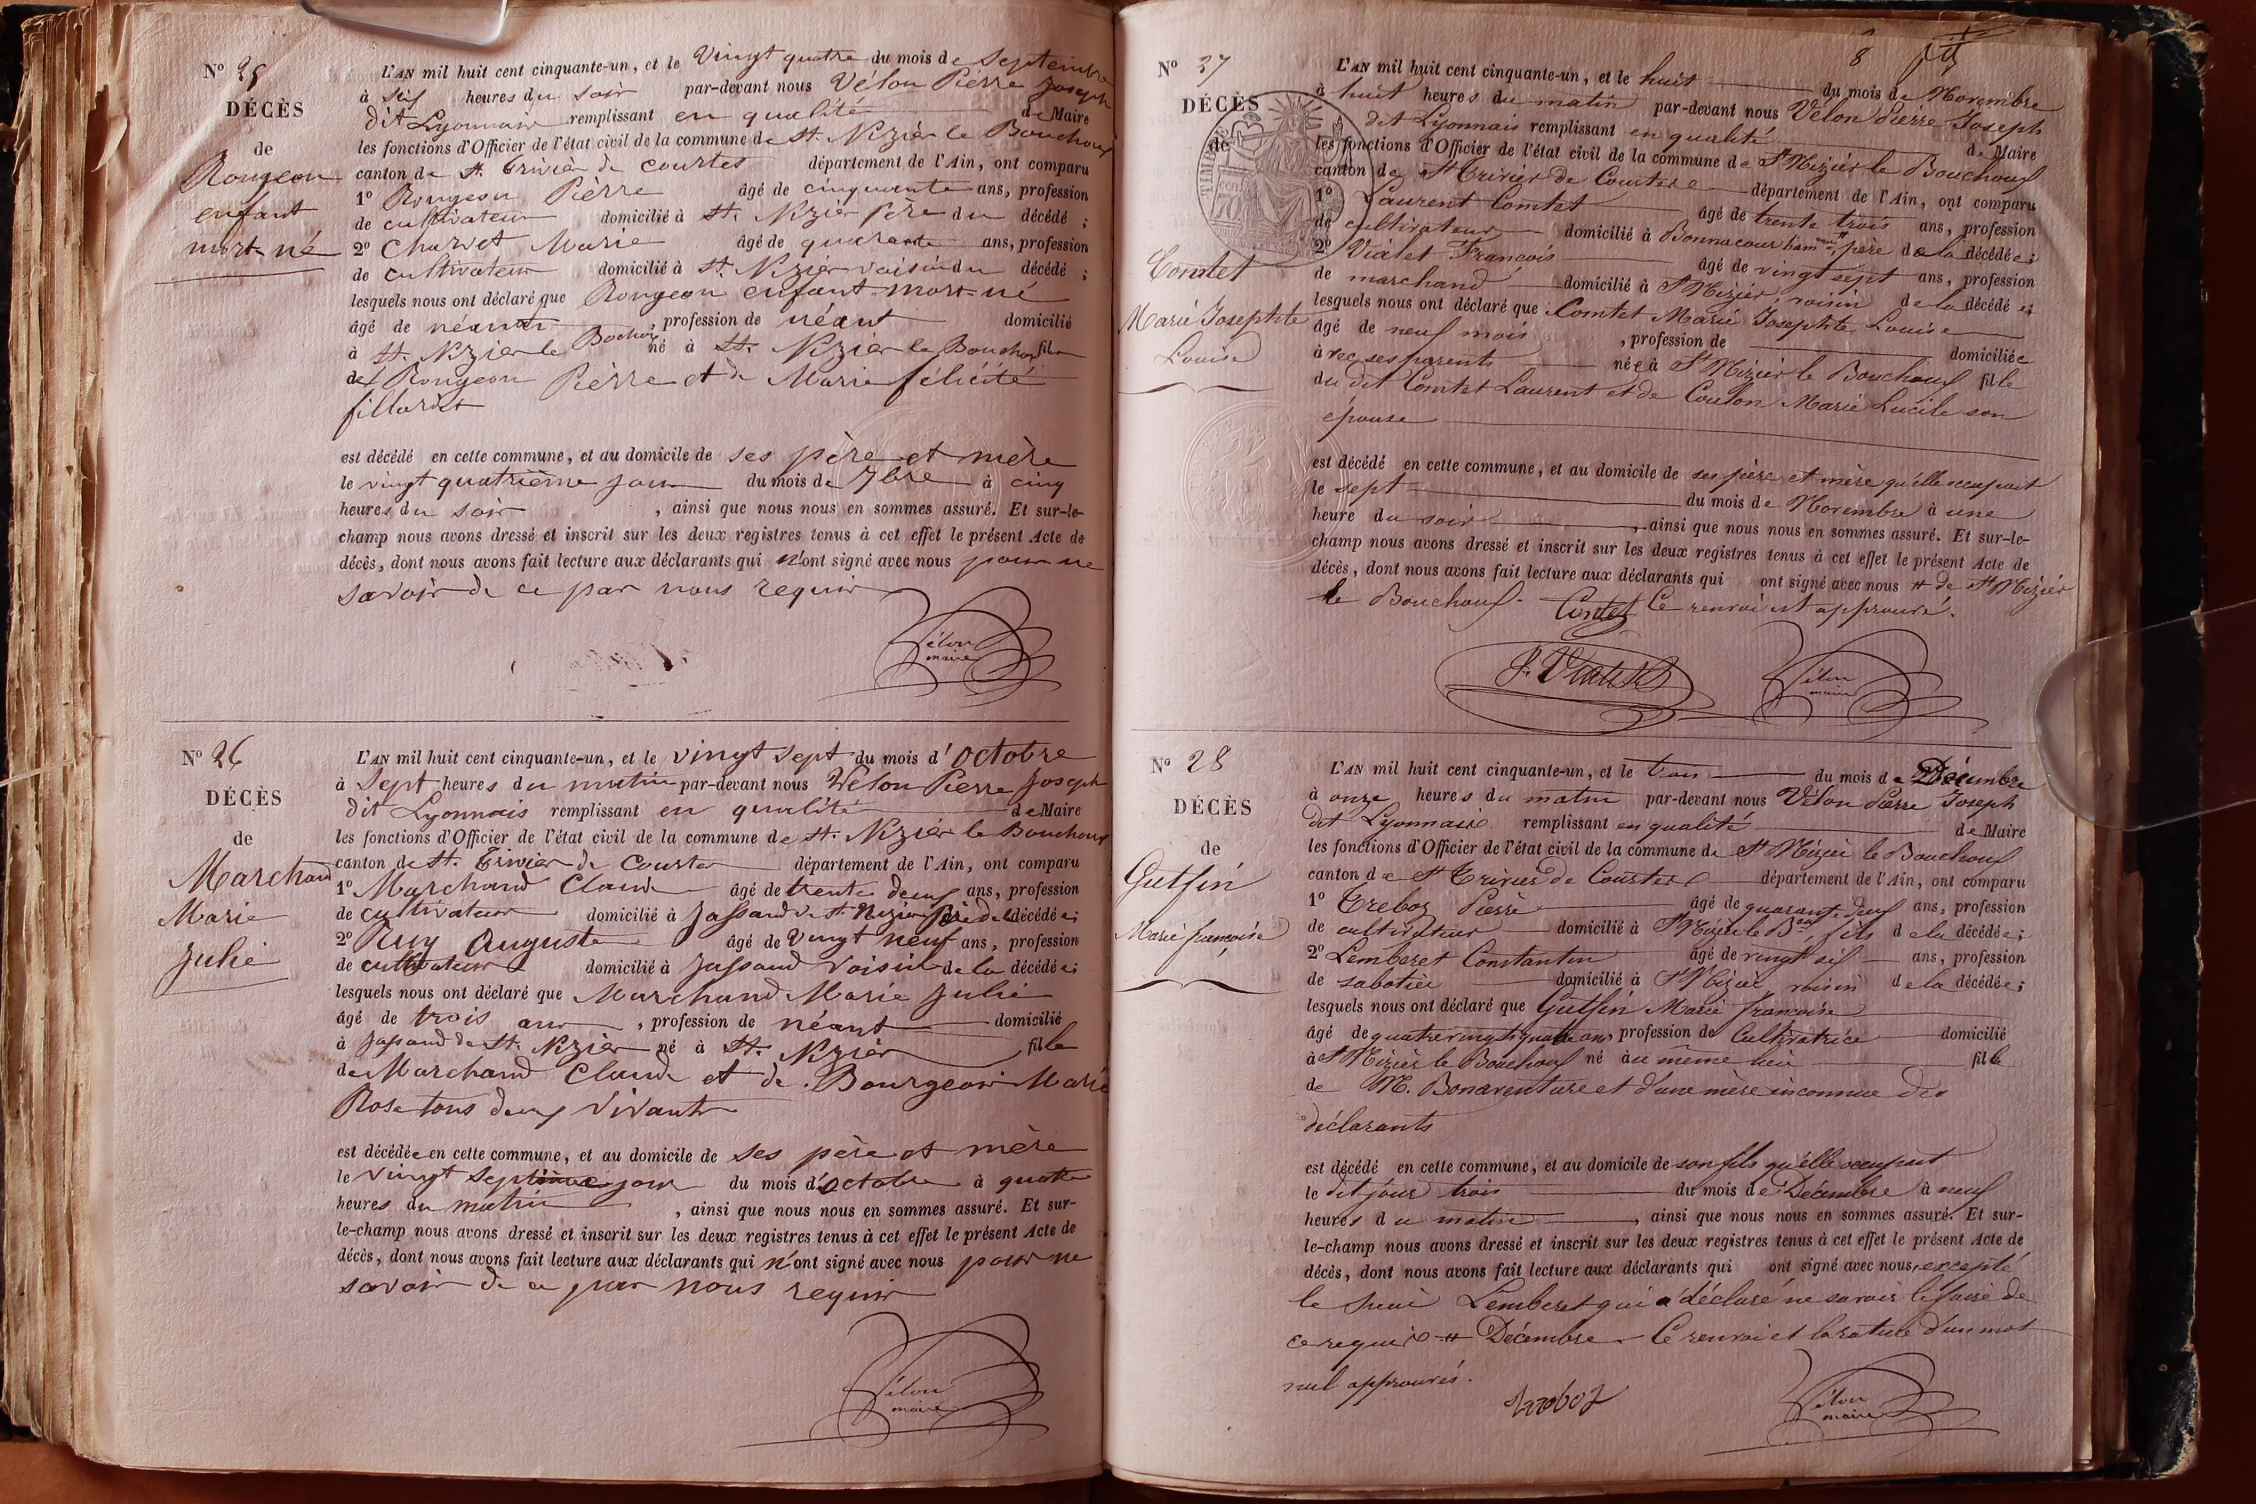 N° 25
DÉCÈS
de
Rongeon
enfant
mort-né
L'AN mil huit cent cinquante-un, et le Vingt quatre du mois de Septembre
à six heures du soir par-devant nous Vélon Pierre Joseph
dit Lyonnais remplissant en qualité de Maire
les fonctions d'Officier de l'état civil de la commune de St. Nizier le Bouchoux
canton de St. Trivier de Courtes département de l'Ain, ont comparu
1° Rongeon Pierre âgé de cinquante ans, profession
de cultivateur domicilié à St. Nizier père du décédé ;
2° Charvet Marie âgé de quarante ans, profession
de cultivateur domicilié à St. Nizier voisin du décédé ;
lesquels nous ont déclaré que Rongeon enfant mort-né
âgé de néant, profession de néant domicilié
à St. Nizier le Bochoux né à St. Nizier le Bouchoux fils
de Rongeon Pierre et de Marie félicité
fillardet
est décédé en cette commune, et au domicile de ses père et mère
le vingt quatrième jour du mois de 7bre à cinq
heures du soir, ainsi que nous nous en sommes assuré. Et sur-le-
champ nous avons dressé et inscrit sur les deux registres tenus à cet effet le présent Acte de
décès, dont nous avons fait lecture aux déclarants qui n'ont signé avec nous pour ne
savoir de ce par nous requis
Vélon
maire
N° 26
DÉCÈS
de
Marchand
Marie
Julie
L'AN mil huit cent cinquante-un, et le vingt sept du mois d'Octobre
à Sept heures du matin par-devant nous Vélon Pierre Joseph
dit Lyonnais remplissant en qualité de Maire
les fonctions d'Officier de l'état civil de la commune de St. Nizier le Bouchoux
canton de St. Trivier de Courtes département de l'Ain, ont comparu
1° Marchand Claude âgé de trente deux ans, profession
de cultivateur domicilié à Jassand de St. Nizier Père de la décédée ;
2° Ruy Auguste âgé de vingt neuf ans, profession
de cultivateur domicilié à Jassand Voisin de la décédée ;
lesquels nous ont déclaré que Marchand Marie Julie
âgé de trois ans, profession de néant domicilié
à Jassand de St. Nizier né à St. Nizier fille
de Marchand Claude et de Bourgeois Marie
Rose tous deux vivants
est décédée en cette commune, et au domicile de ses père et mère
le vingt septième jour du mois d'Octobre à quatre
heures du matin, ainsi que nous nous en sommes assuré. Et sur-
le-champ nous avons dressé et inscrit sur les deux registres tenus à cet effet le présent Acte de
décès, dont nous avons fait lecture aux déclarants qui n'ont signé avec nous pour ne
savoir de ce par nous requis
Vélon
maire
8
N° 37
DÉCÈS
de
Comtet
Marie Josephte
Louise
L'AN mil huit cent cinquante-un, et le huit du mois de Novembre
à huit heures du matin par-devant nous Vélon Pierre Joseph
dit Lyonnais remplissant en qualité de Maire
les fonctions d'Officier de l'état civil de la commune de St Nizier le Bouchoux
canton de St Trivier de Courtes département de l'Ain, ont comparu
1° Laurent Comtet âgé de trente trois ans, profession
de cultivateur domicilié à Bonnacour ham père de la décédée ;
2° Vialet François âgé de vingt sept ans, profession
de marchand domicilié à St Nizier, voisin de la décédée ;
lesquels nous ont déclaré que Comtet Marie Josephte Louise
âgé de neuf mois, profession de domiciliée
avec ses parents née à St Nizier le Bouchoux fille
du dit Comtet Laurent et de Coulon Marie Lucile son
épouse
est décédé en cette commune, et au domicile de ses père et mère qu'elle occupait
le sept du mois de Novembre à une
heure du soir, ainsi que nous nous en sommes assuré. Et sur-le-
champ nous avons dressé et inscrit sur les deux registres tenus à cet effet le présent Acte de
décès, dont nous avons fait lecture aux déclarants qui ont signé avec nous # de St Nizier
le Bouchoux. Comtet Ce renvoi est approuvé.
f. Vialet
Vélon
maire
N° 28
DÉCÈS
de
Gutfin
Marie françoise
L'AN mil huit cent cinquante-un, et le trois du mois de Décembre
à onze heures du matin par-devant nous Vélon Pierre Joseph
dit Lyonnais remplissant en qualité de Maire
les fonctions d'Officier de l'état civil de la commune de St Nizier le Bouchoux
canton de St Trivier de Courtes département de l'Ain, ont comparu
1° Treboz Pierre âgé de quarante deux ans, profession
de cultivateur domicilié à St Nizier le Boux fils de la décédée ;
2° Lemberet Constantin âgé de vingt six ans, profession
de sabotier domicilié à St Nizier voisin de la décédée ;
lesquels nous ont déclaré que Gutfin Marie françoise
âgé de quatre vingt quatre ans profession de Cultivatrice domicilié
à St Nizier le Bouchoux né au même lieu fille
de M. Bonaventure et d'une mère inconnue des
déclarants
est décédé en cette commune, et au domicile de son fils qu'elle occupait
le dit jour trois du mois de Décembre à neuf
heures du matin, ainsi que nous nous en sommes assuré. Et sur-
le-champ nous avons dressé et inscrit sur les deux registres tenus à cet effet le présent Acte de
décès, dont nous avons fait lecture aux déclarants qui ont signé avec nous, excepté
le Lemberet qui a déclaré ne savoir le faire de
ce requis # Décembre. Ce renvoi et la rature d'un mot
nul approuvés.
Treboz
Vélon
maire